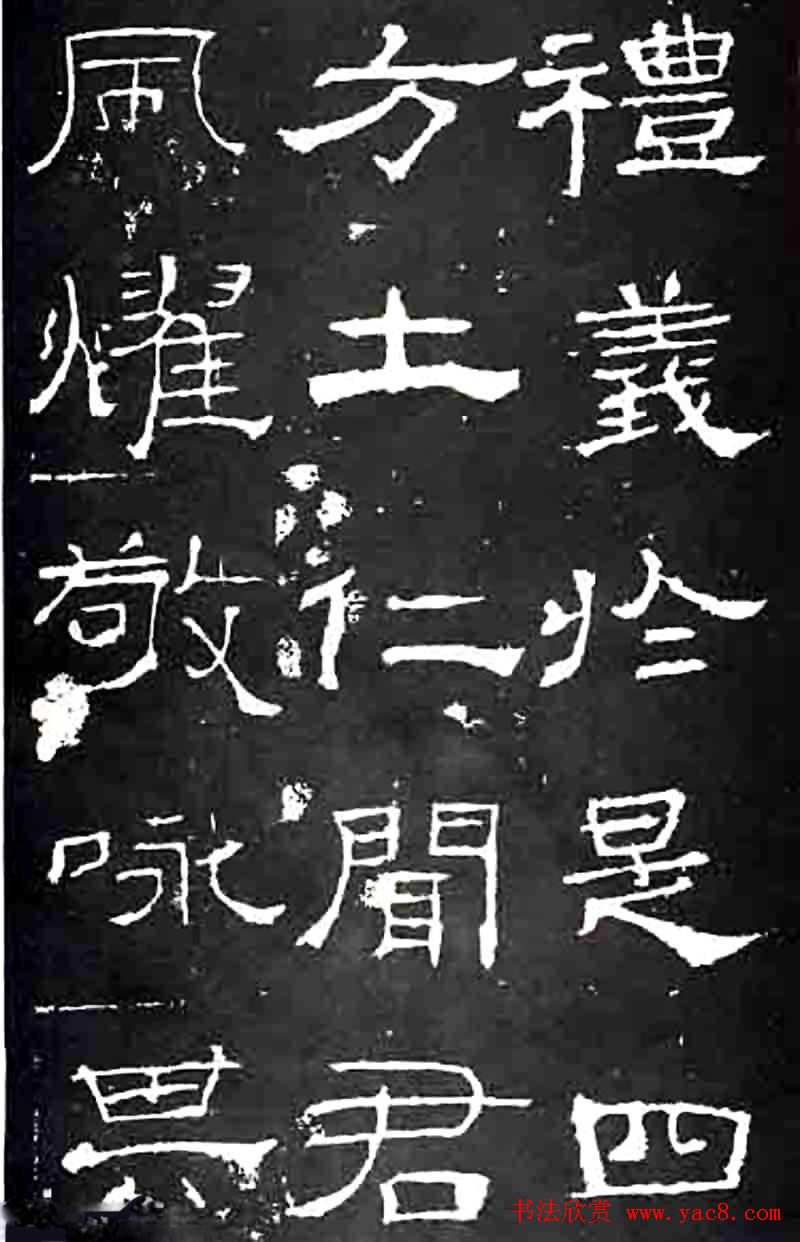 禮義於是四
方土仁聞君
風燿敬咏其
书法欣赏 www.yac8.com